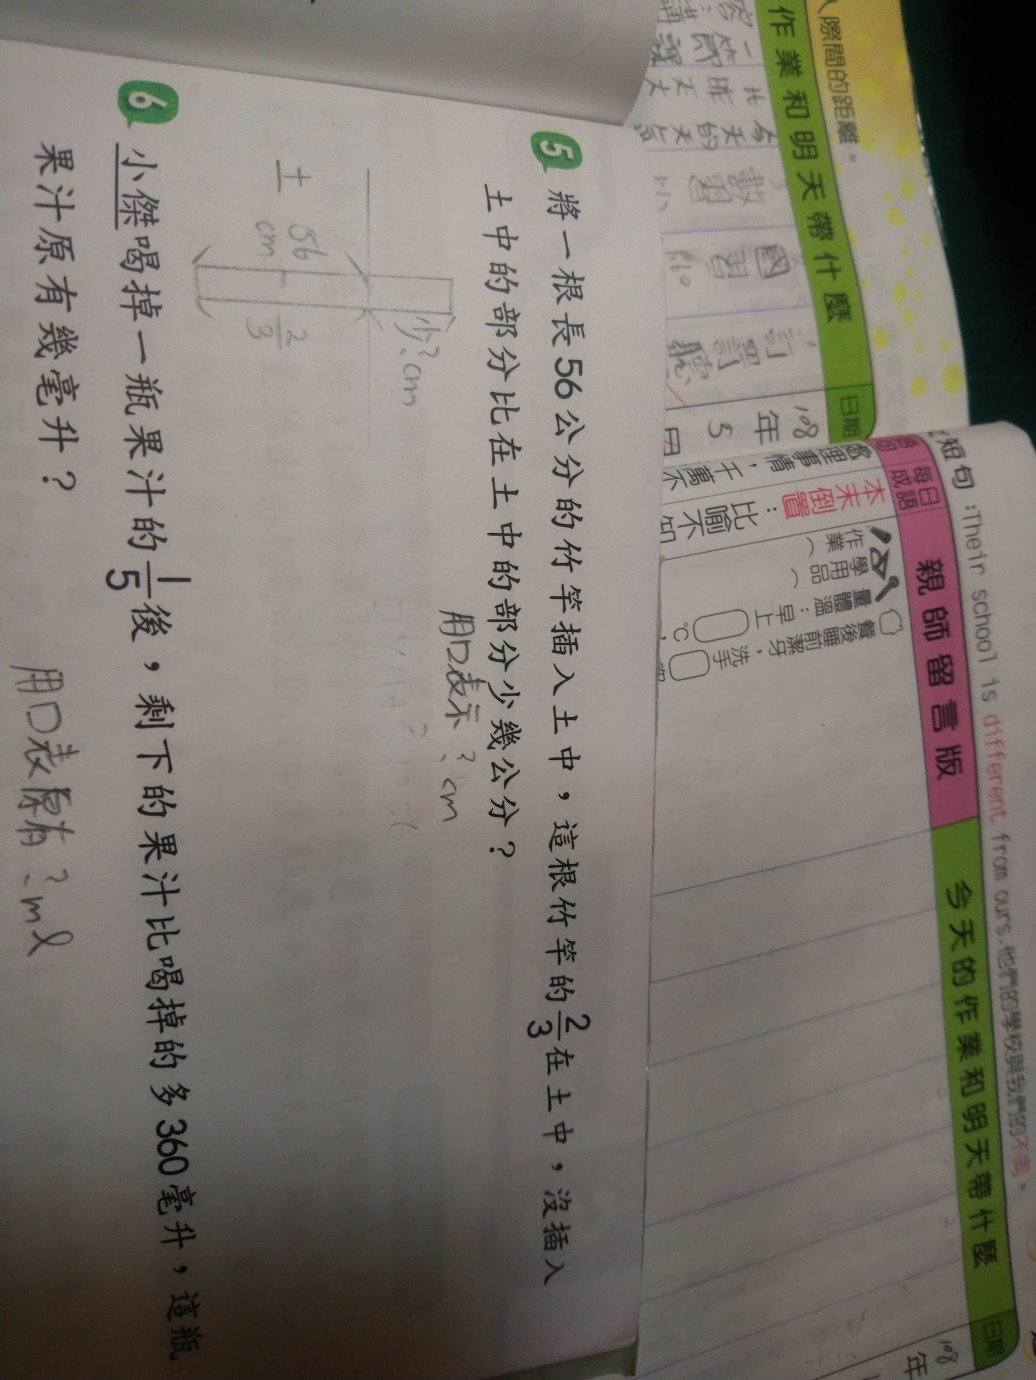 短句:Their school is different from ours.他們的學校與我們的不同。
親師留言版
今天的作業和明天帶什麼
日期
108年
每日成語
本末倒置:比喻不知
處理事情,千萬不
作業(
學用品(
量體溫:早上 ℃
餐後睡前潔牙
洗手
人際間的距離。
作業和明天帶什麼
日期
108年
5
數習
國習
5 將一根長56公分的竹竿插入土中,這根竹竿的2/3在土中,沒插入
土中的部分比在土中的部分少幾公分?
用口表示?cm
少?cm
土
56
cm
2/3
6 小傑喝掉一瓶果汁的1/5後,剩下的果汁比喝掉的多360毫升,這瓶
果汁原有幾毫升?
用口表原有?ml